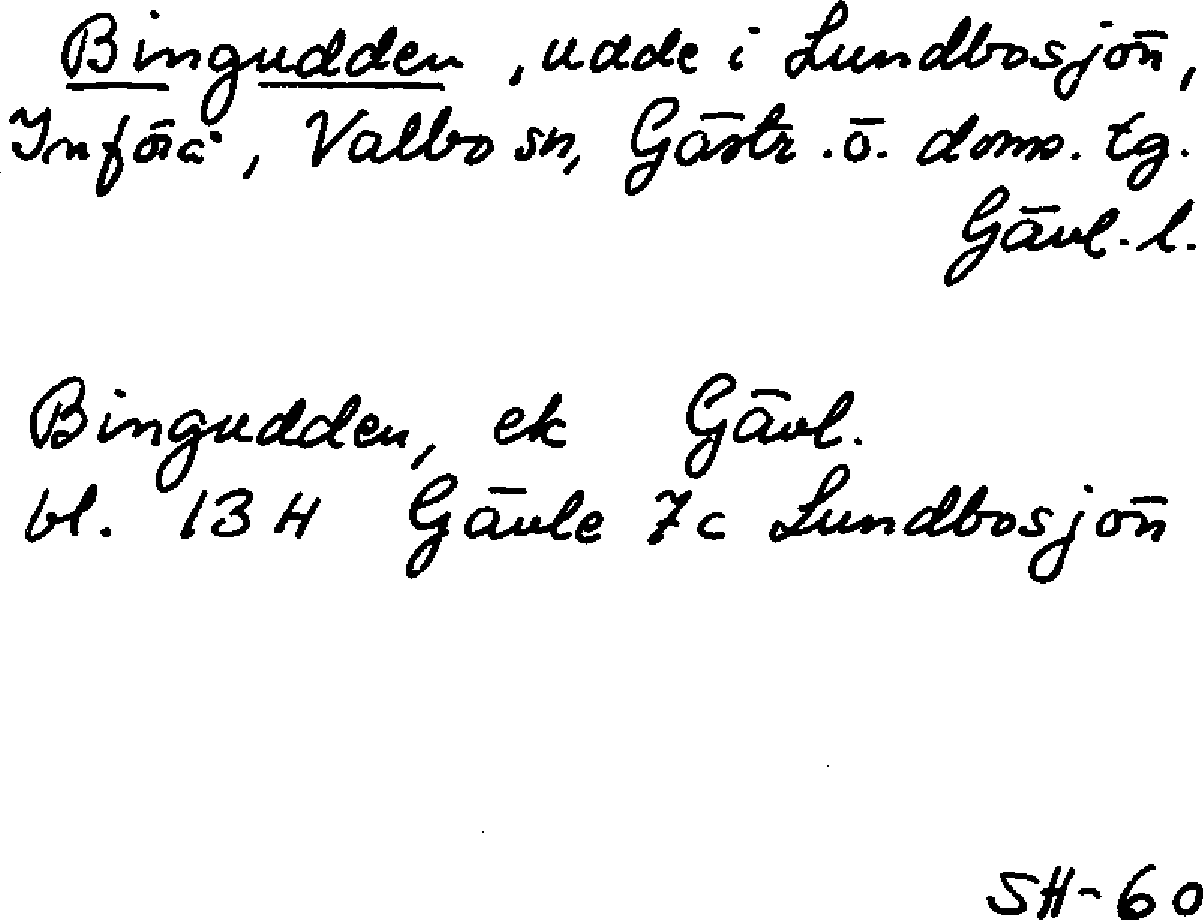 Bingudden, udde i Lundbosjön,
Införå, Valbo sn, Gästr. ö. doms. tg.
Gävl. l.
Bingudden, ek Gävl.
bl. 13 H Gävle 7c Lundbosjön
SH-60